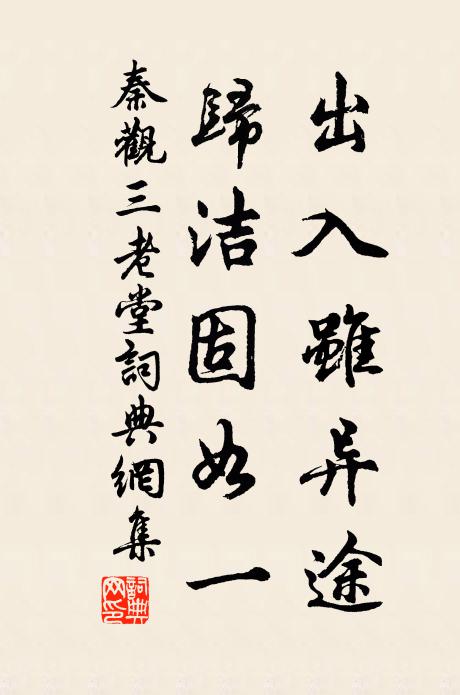 出入雖异途
歸洁固如一
秦觀三老堂詞典網集
詞典網印